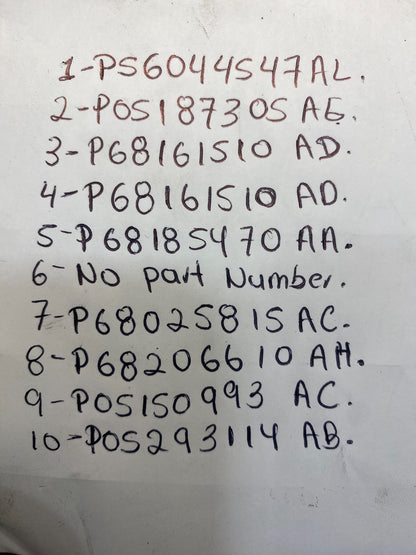 1-P56044547AL.
2-P05187305 AE.
3-P68161510 AD.
4-P68161510 AD.
5-P68185470 AA.
6-No part Number.
7-P68025815 AC.
8-P68206610 AH.
9-P05150993 AC.
10-P05293114 AB.